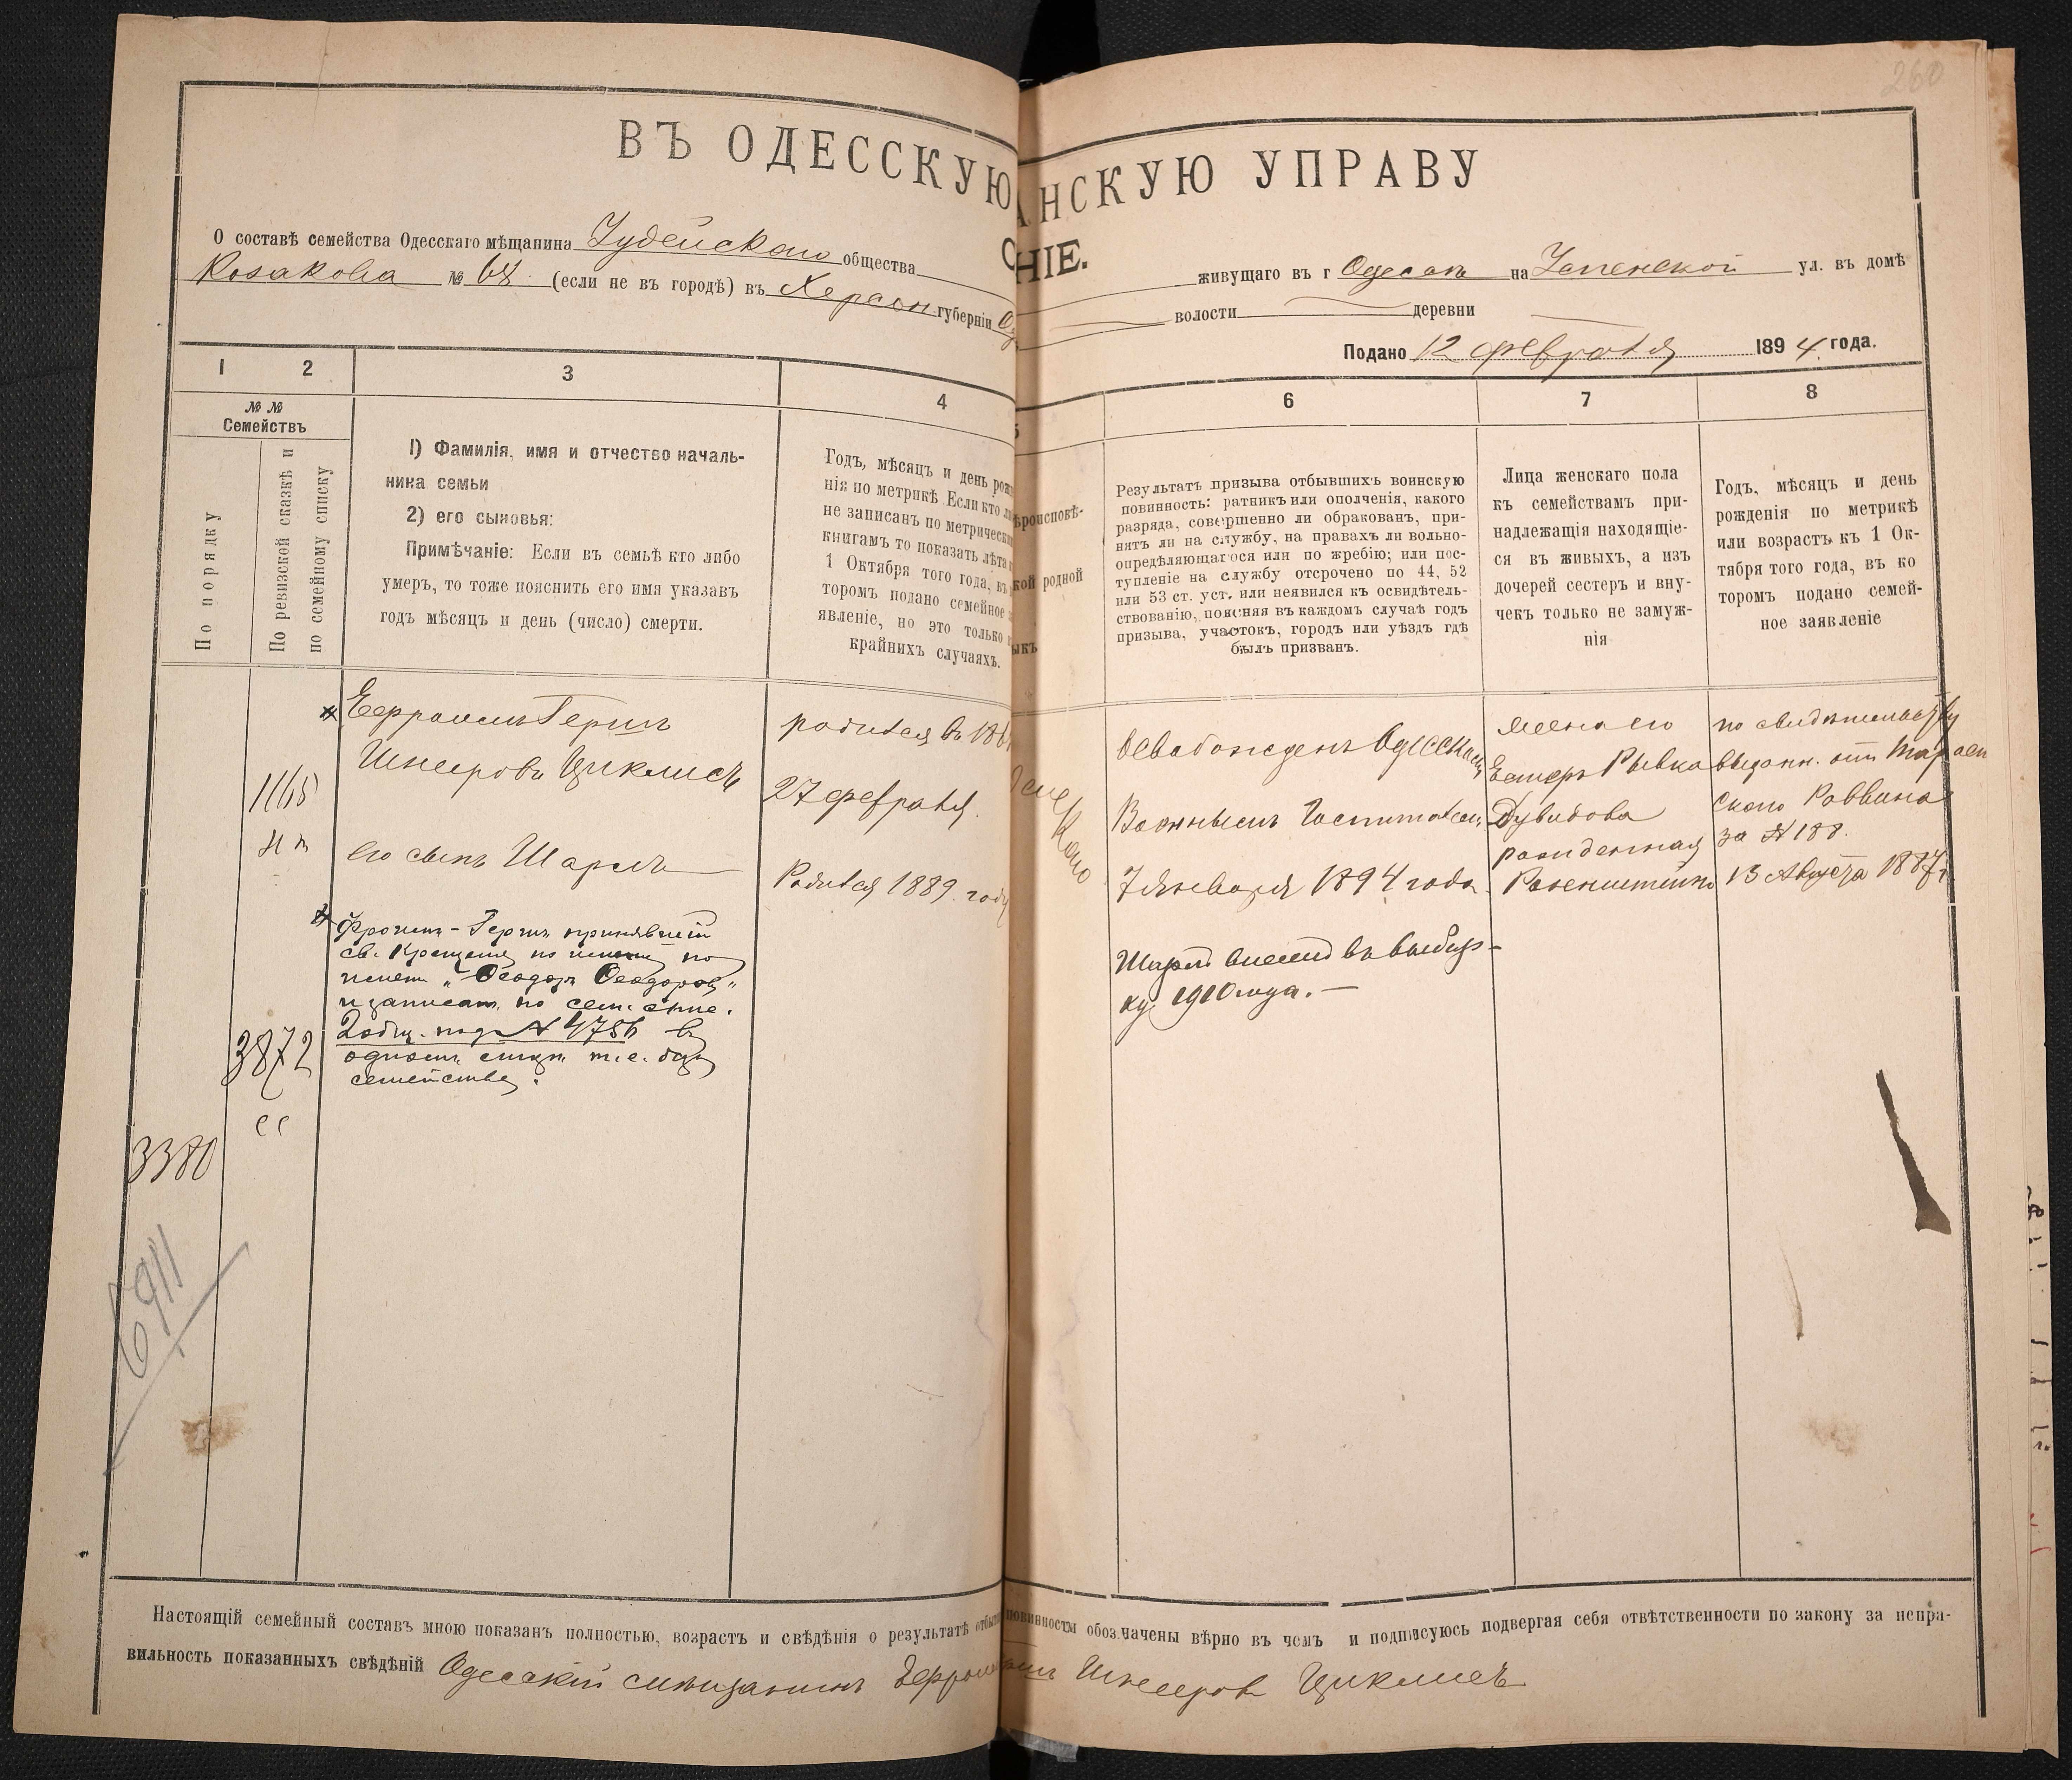 260
ВЪ ОДЕССКУЮ
АНСКУЮ УПРАВУ
НІЕ.
О составѣ семейства Одесскаго мѣщанина Іудейскаго общества
живущаго въ г Одессѣ на Успенской ул. въ домѣ
Козакова № 68 (если не въ городѣ) въ Херсон. губерніи
волости деревни
Подано 12 февраля 1894 года.
1 2 3 4
6 7 8
№ №
Семействъ
По порядку
По ревизской сказкѣ и
по семейному списку
1) Фамилія, имя и отчество началь-
ника семьи
2) его сыновья:
Примѣчаніе: Если въ семьѣ кто либо
умеръ, то тоже пояснить его имя указавъ
годъ мѣсяцъ и день (число) смерти.
Годъ, мѣсяцъ и день рож
нія по метрикѣ Если кто ли
не записанъ по метрически
книгамъ то показать лѣта
1 Октября того года, въ
торомъ подано семейное
явленіе, но это только
крайнихъ случаяхъ.
ѣроисповѣ-
кой родной
ыкъ
Результатъ призыва отбывшихъ воинскую
повинность: ратникъ или ополченія, какого
разряда, совершенно ли обракованъ, при-
нятъ ли на службу, на правахъ ли вольно-
опредѣляющагося или по жребію; или пос-
тупленіе на службу отсрочено по 44, 52
или 53 ст. уст. или неявился къ освидѣтель-
ствованію, поясняя въ каждомъ случаѣ годъ
призыва, участокъ, городъ или уѣздъ гдѣ
былъ призванъ.
Лица женскаго пола
къ семействамъ при-
надлежащія находящіе-
ся въ живыхъ, а изъ
дочерей сестеръ и вну-
чекъ только не замуж-
нія
Годъ, мѣсяцъ и день
рожденія по метрикѣ
или возрастъ къ 1 Ок-
тября того года, въ ко
торомъ подано семей-
ное заявленіе
Ефроимъ Гершъ
Шнееровъ Циклисъ
его сынъ Шарль
1165
Фроимъ-Гершъ принявшій
св. Крещеніе по
имени „Ѳеодоръ Ѳеодоровъ“
и записанъ по сем.
2 общ. подъ № 4756 въ
одномъ лицѣ т. е. безъ
семейства.
3872
3380
6911
родился въ 186
27 февраля.
Родился 1889 году
Освобожденъ Одесскимъ
Военнымъ Госпиталемъ
7 Января 1894 года.
Шарль внесенъ въ выбор-
ку 1910 года. —
жена его
Естеръ Рывка
Дувидова
рожденная
Розенштейнъ
по свидѣтельству
выданн. отъ
скаго Раввина
за № 188.
13 Августа 1887 г.
Настоящій семейный составъ мною показанъ полностью, возрастъ и свѣдѣнія о результатѣ отбы повинности обозначены вѣрно въ чемъ и подписуюсь подвергая себя отвѣтственности по закону за непра-
вильность показанныхъ свѣдѣній Одесскій мѣщанинъ Шнееровъ Циклисъ